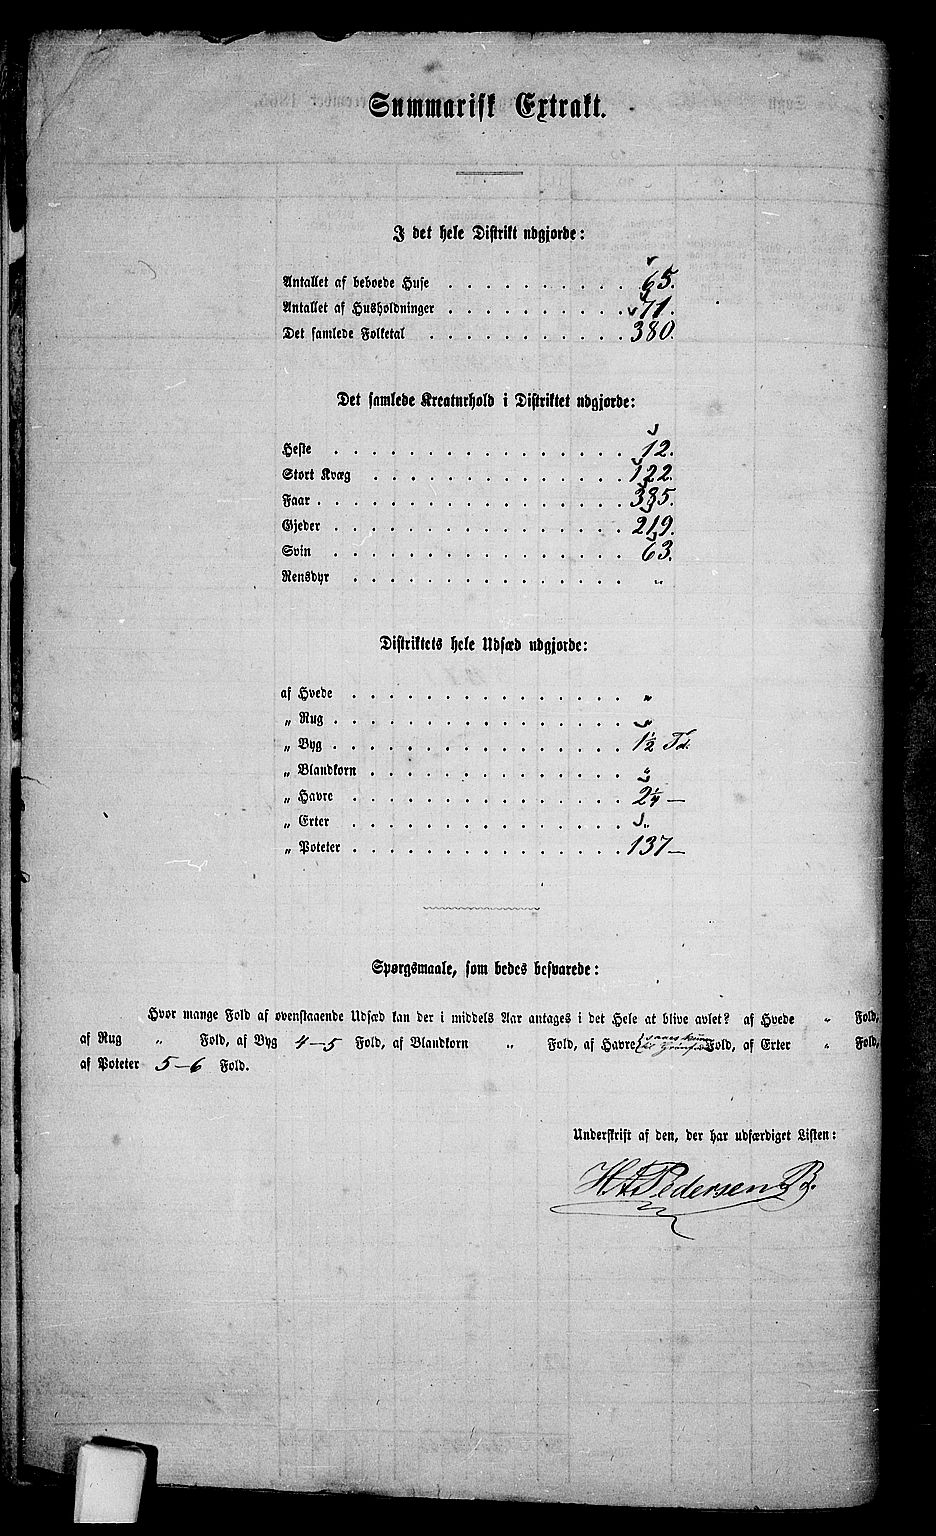 Summarisk Extrakt.
I det hele Distrikt udgjorde:
Antallet af beboede Huse . . . . . . . . . . 65.
Antallet af Husholdninger . . . . . . . . . . 71.
Det samlede Folketal . . . . . . . . . . . 380.
Det samlede Kreaturhold i Distriktet udgjorde:
Heste . . . . . . . . . . . . . . . . 12.
Stort Kvæg . . . . . . . . . . . . . . 122.
Faar . . . . . . . . . . . . . . . . . 385.
Gjeder . . . . . . . . . . . . . . . . 219.
Svin . . . . . . . . . . . . . . . . 63.
Rensdyr . . . . . . . . . . . . . . . „
Distriktets hele Udsæd udgjorde:
af Hvede . . . . . . . . . . . . . . . „
„ Rug . . . . . . . . . . . . . . . . „
„ Byg . . . . . . . . . . . . . . . . 1½ Td.
„ Blandkorn . . . . . . . . . . . . . . „
„ Havre . . . . . . . . . . . . . . . 2¼ —
„ Erter . . . . . . . . . . . . . . . „
„ Poteter . . . . . . . . . . . . . . . 137 —
Spørgsmaale, som bedes besvarede:
Hvor mange Fold af ovenstaaende Udsæd kan der i middels Aar antages i det Hele at blive avlet? af Hvede „ Fold,
af Rug „ Fold, af Byg 4—5 Fold, af Blandkorn „ Fold, af Havre Fold, af Erter „ Fold,
af Poteter 5—6 Fold.
Underskrift af den, der har udfærdiget Listen:
H A Pedersen B.